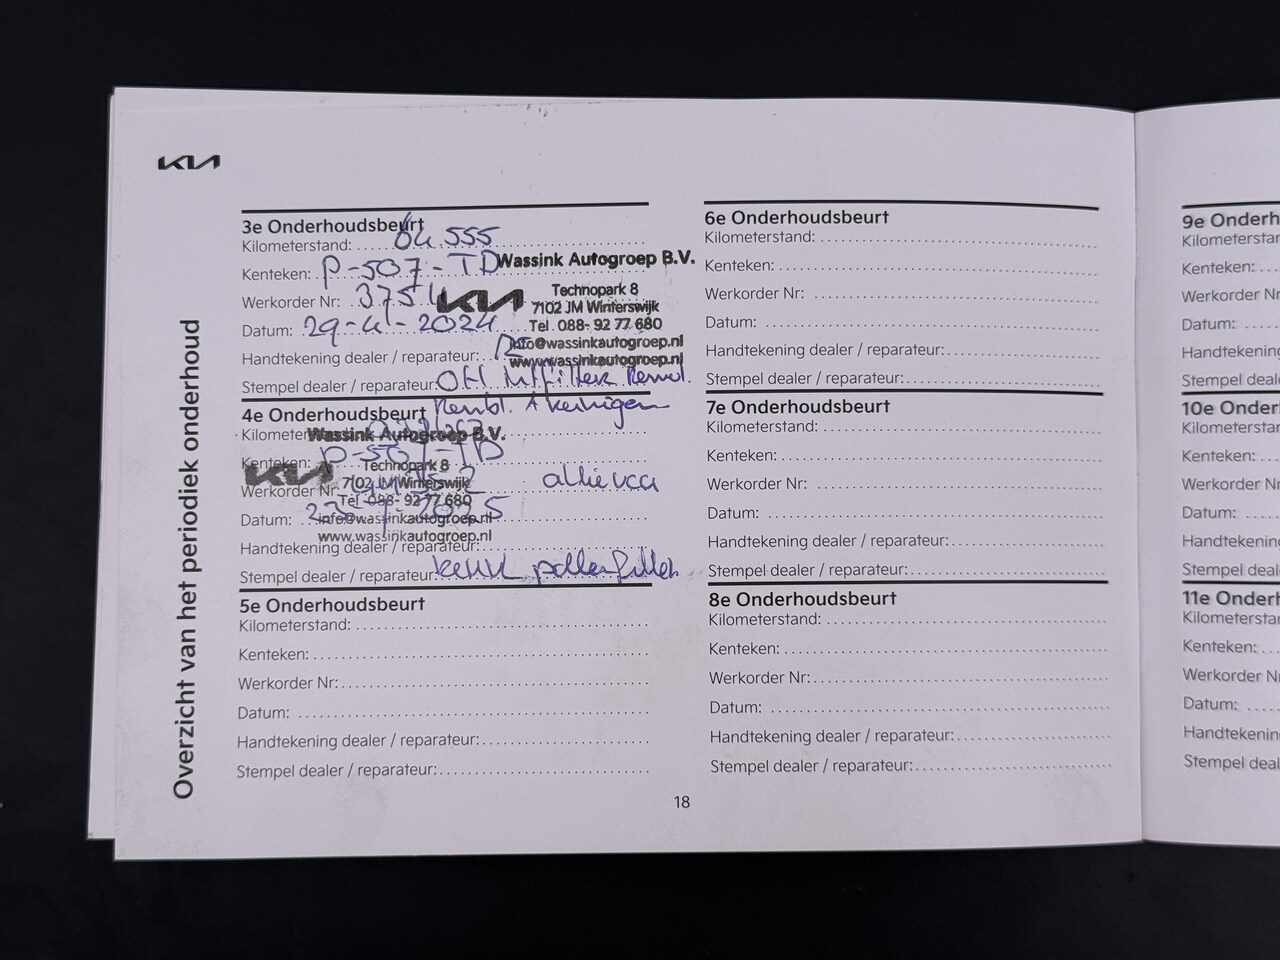 KIA
Overzicht van het periodiek onderhoud
3e Onderhoudsbeurt
Kilometerstand: 64.555
Kenteken: P-507-TD
Werkorder Nr: 3754
Datum: 29-4-2024
Handtekening dealer / reparateur:
Stempel dealer / reparateur: Olie
Wassink Autogroep B.V.
KIA
Technopark 8
7102 JM Winterswijk
Tel. 088- 92 77 680
info@wassinkautogroep.nl
www.wassinkautogroep.nl
4e Onderhoudsbeurt
Kilometer
Kenteken: P-507-TD
Werkorder Nr:
Datum: 2025
Handtekening dealer / reparateur:
Stempel dealer / reparateur: pollenfilter
Wassink Autogroep B.V.
KIA
Technopark 8
7102 JM Winterswijk
Tel. 088- 92 77 680
info@wassinkautogroep.nl
www.wassinkautogroep.nl
5e Onderhoudsbeurt
Kilometerstand:
Kenteken:
Werkorder Nr:
Datum:
Handtekening dealer / reparateur:
Stempel dealer / reparateur:
6e Onderhoudsbeurt
Kilometerstand:
Kenteken:
Werkorder Nr:
Datum:
Handtekening dealer / reparateur:
Stempel dealer / reparateur:
7e Onderhoudsbeurt
Kilometerstand:
Kenteken:
Werkorder Nr:
Datum:
Handtekening dealer / reparateur:
Stempel dealer / reparateur:
8e Onderhoudsbeurt
Kilometerstand:
Kenteken:
Werkorder Nr:
Datum:
Handtekening dealer / reparateur:
Stempel dealer / reparateur:
18
9e Onderh
Kilometerstan
Kenteken:
Werkorder Nr
Datum:
Handtekening
Stempel deal
10e Onder
Kilometerstan
Kenteken:
Werkorder Nr
Datum:
Handtekening
Stempel deal
11e Onderh
Kilometerstan
Kenteken:
Werkorder Nr
Datum:
Handtekening
Stempel deal